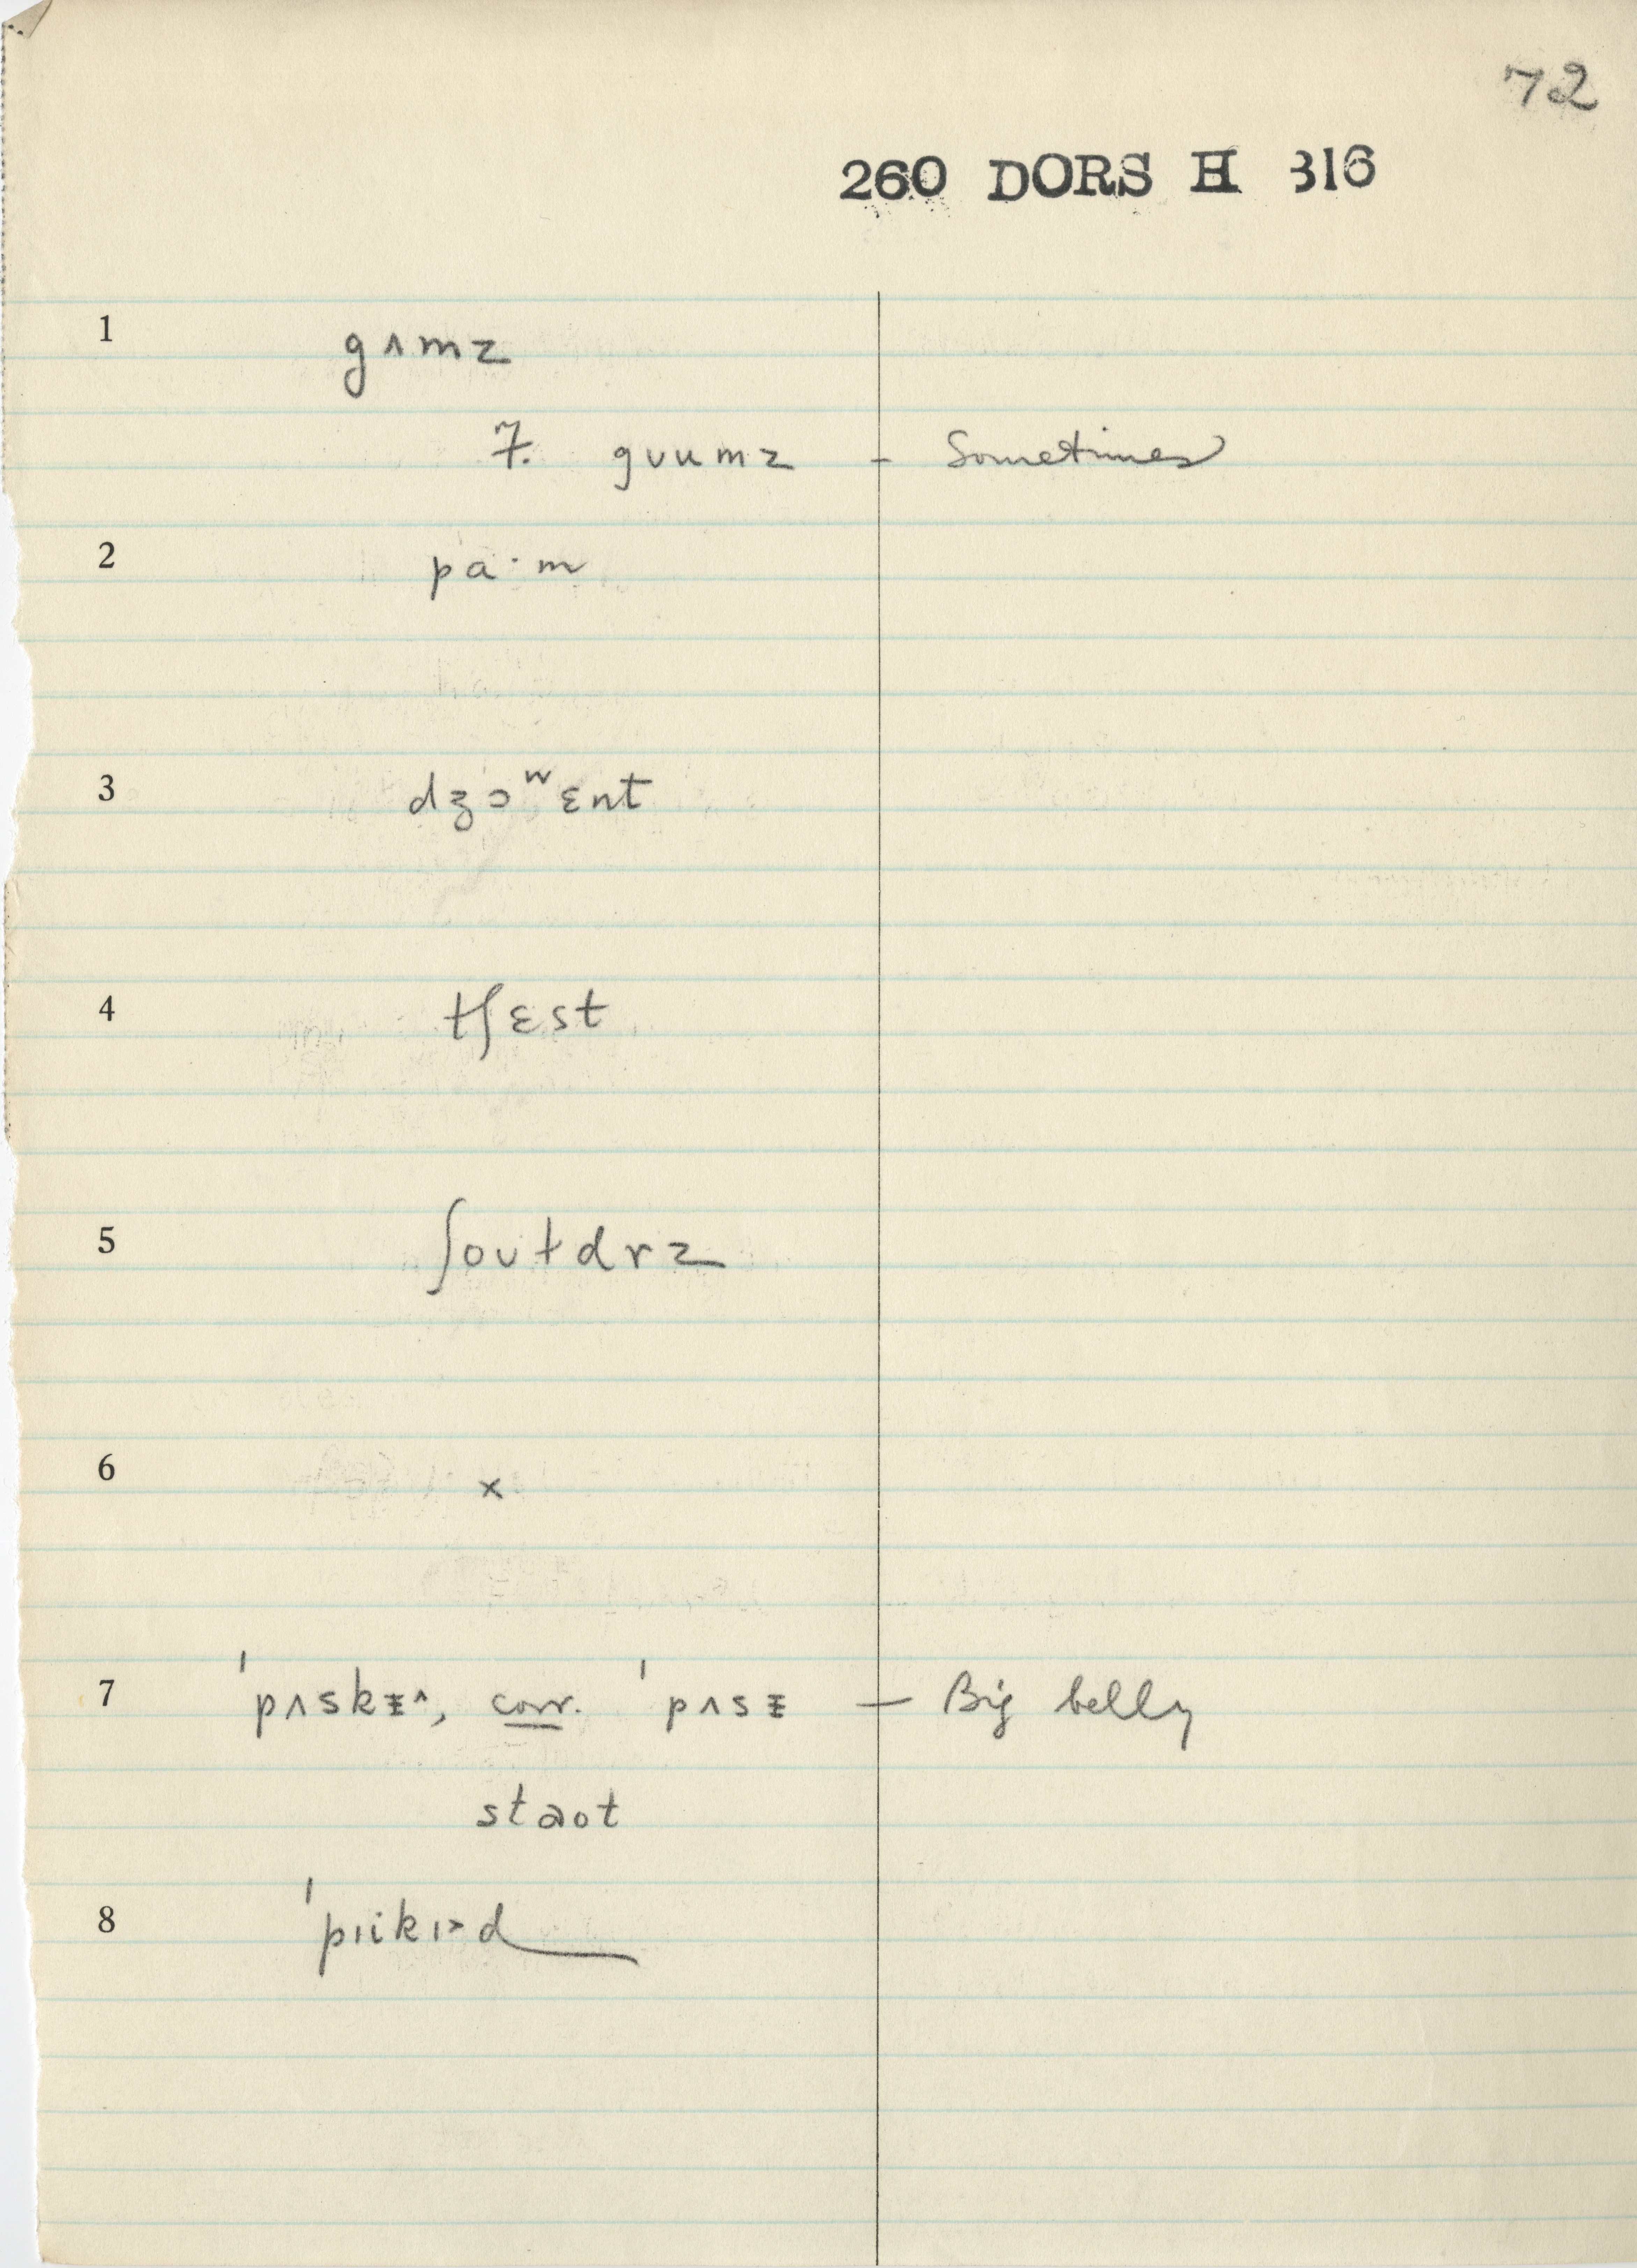 72
260 DORS H 316
1 gʌmz
7. gᴜumz – Sometimes
2 pa·m
3 dʒɔʷɛnt
4 tʃɛst
5 ʃoᴜɫdrz
6 x
7 ˈpʌskɪ̵ˆ, corr. ˈpʌsɪ̵ – Big belly
staot
8 ˈpɪikɪ>d